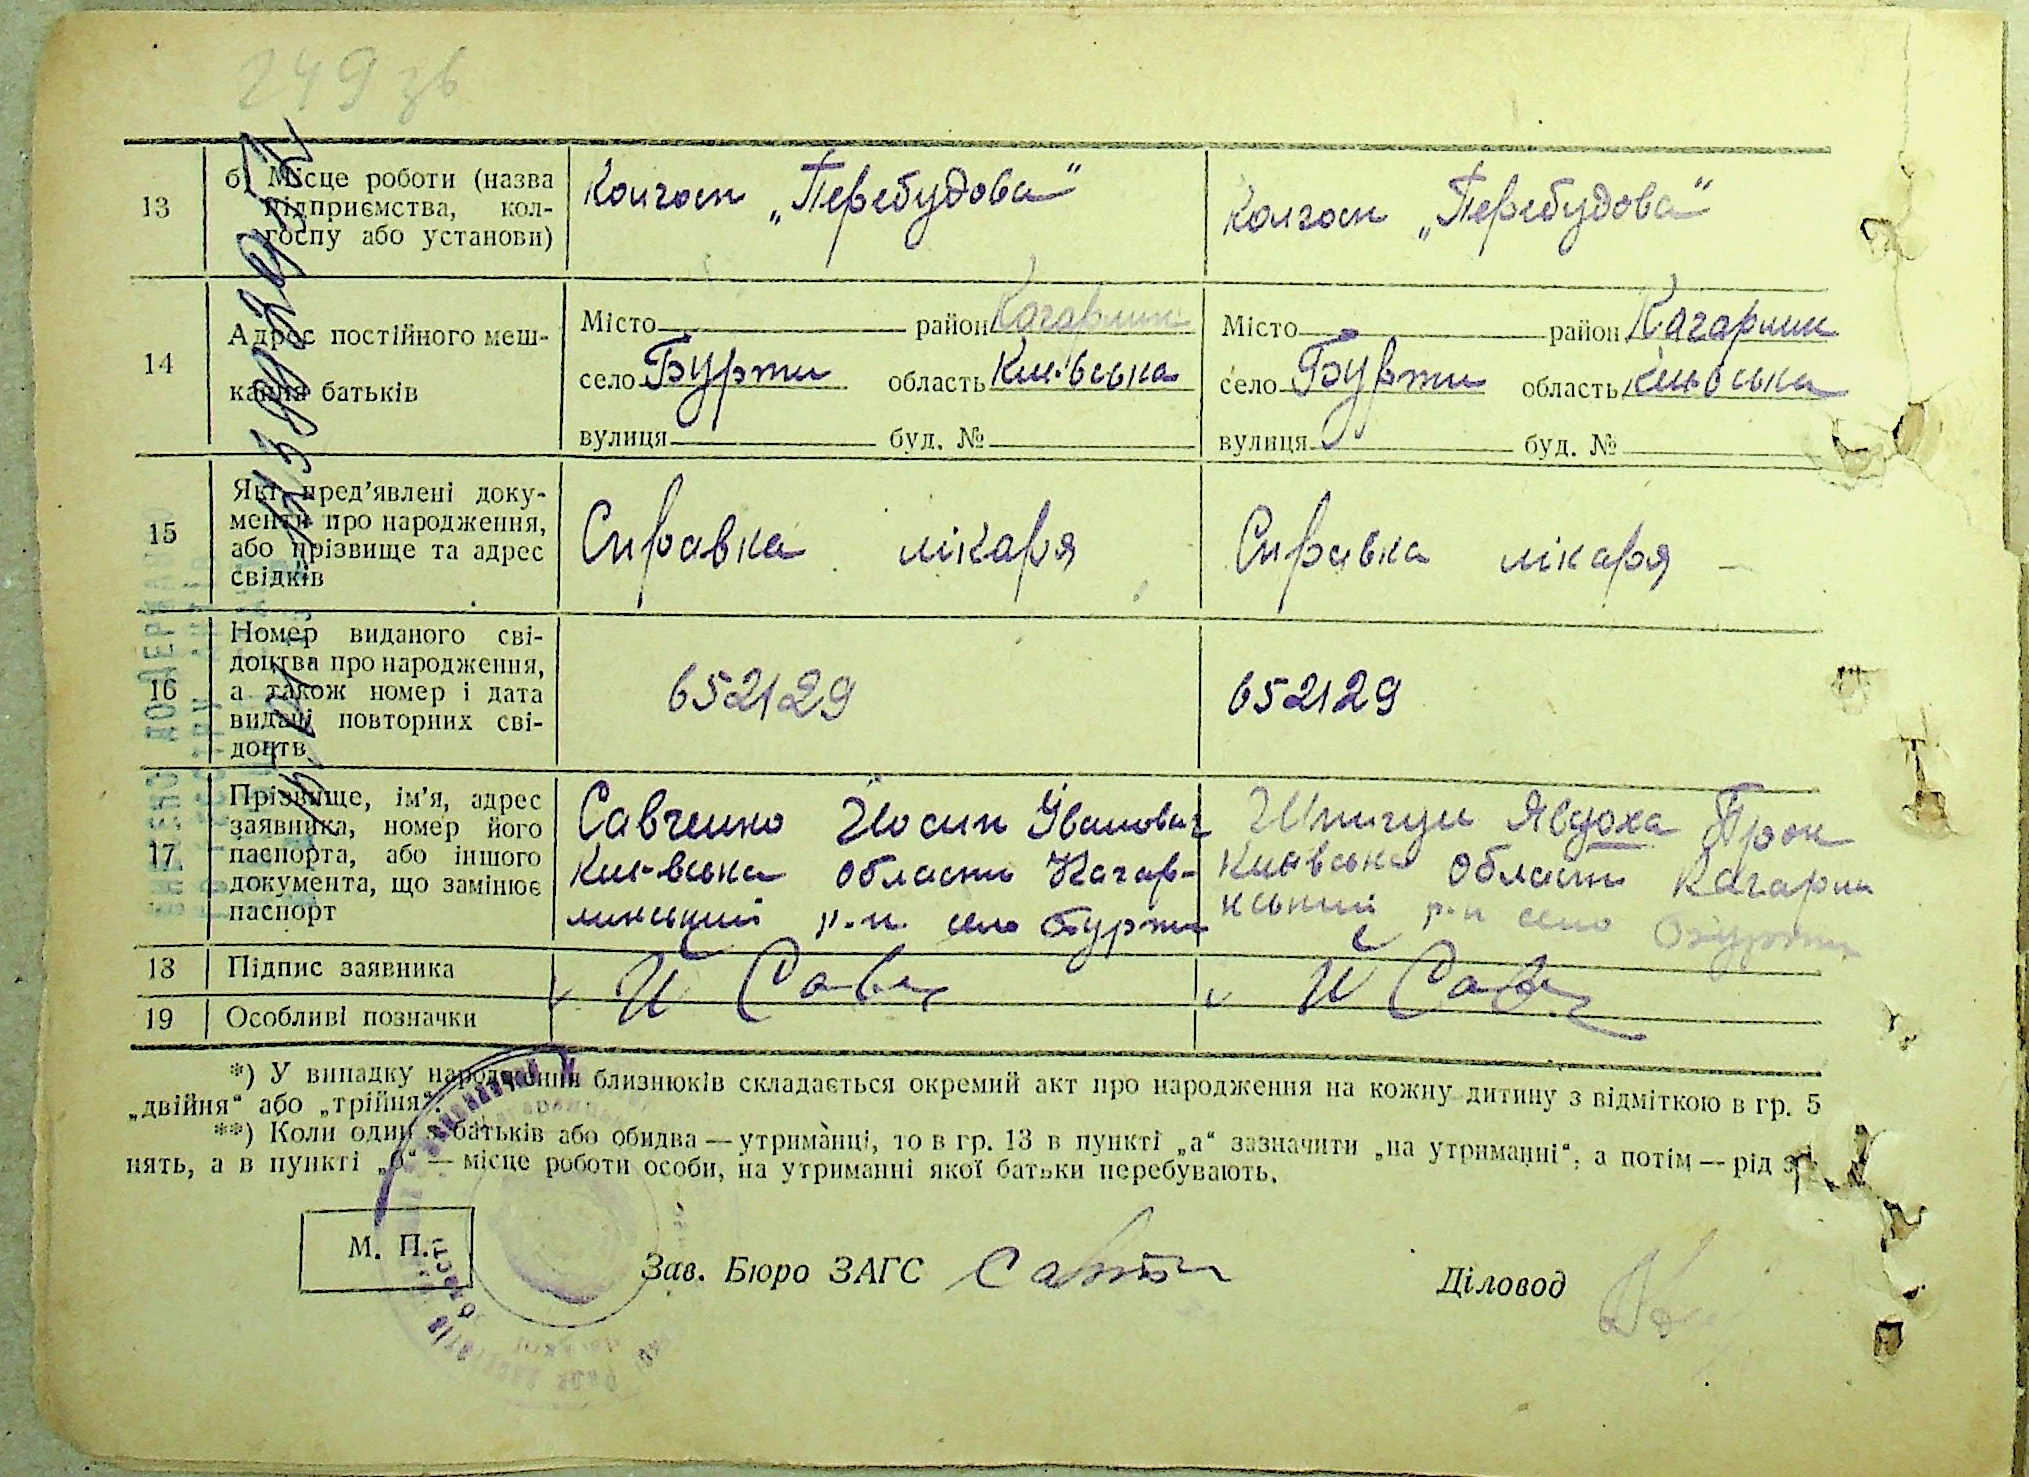 249 зв
13
б) Місце роботи (назва
підприємства, кол-
госпу або установи)
Колгосп „Перебудова“
Колгосп „Перебудова“
14
Адрес постійного меш-
кання батьків
Місто район Кагарлик
село Бурти область Київська
вулиця буд. №
Місто район Кагарлик
село Бурти область Київська
вулиця буд. №
15
Які пред’явлені доку-
менти про народження,
або прізвище та адрес
свідків
Справка лікаря
Справка лікаря
16
Номер виданого сві-
доцтва про народження,
а також номер і дата
видачі повторних сві-
доцтв
652129
652129
17
Прізвище, ім’я, адрес
заявника, номер його
паспорта, або іншого
документа, що замінює
паспорт
Савченко Йосип Іванович
Київська область Кагар-
линський р-н село Бурти
Явдоха Прок
Київська область Кагарли
нський р-н село Бурти
18 Підпис заявника
Й Савч
Й Савч
19 Особливі позначки
*) У випадку народження близнюків складається окремий акт про народження на кожну дитину з відміткою в гр. 5
„двійня“ або „трійня“.
**) Коли один з батьків або обидва — утриманці, то в гр. 13 в пункті „а“ зазначити „на утриманні“, а потім — рід за-
нять, а в пункті „б“ — місце роботи особи, на утриманні якої батьки перебувають.
М. П.
Зав. Бюро ЗАГС
Діловод